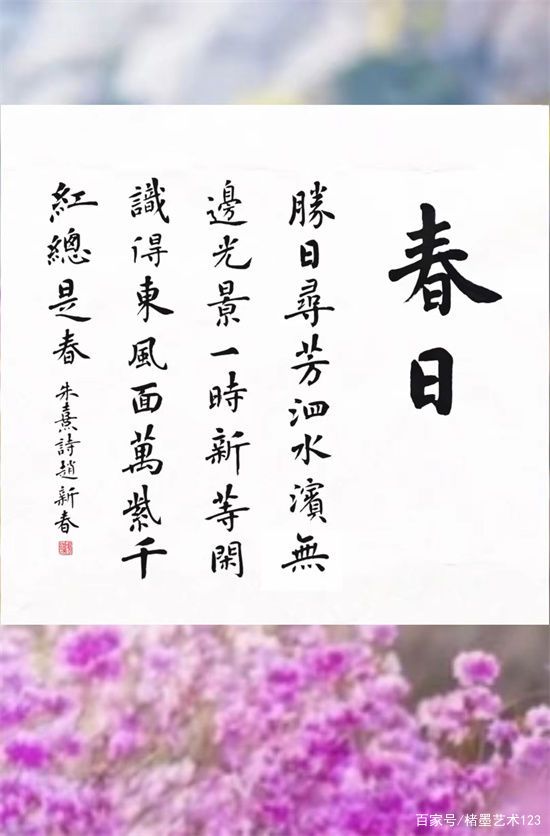 春日
勝日尋芳泗水濱無
邊光景一時新等閑
識得東風面萬紫千
紅總是春 朱熹詩趙新春
百家号/楮墨艺术123